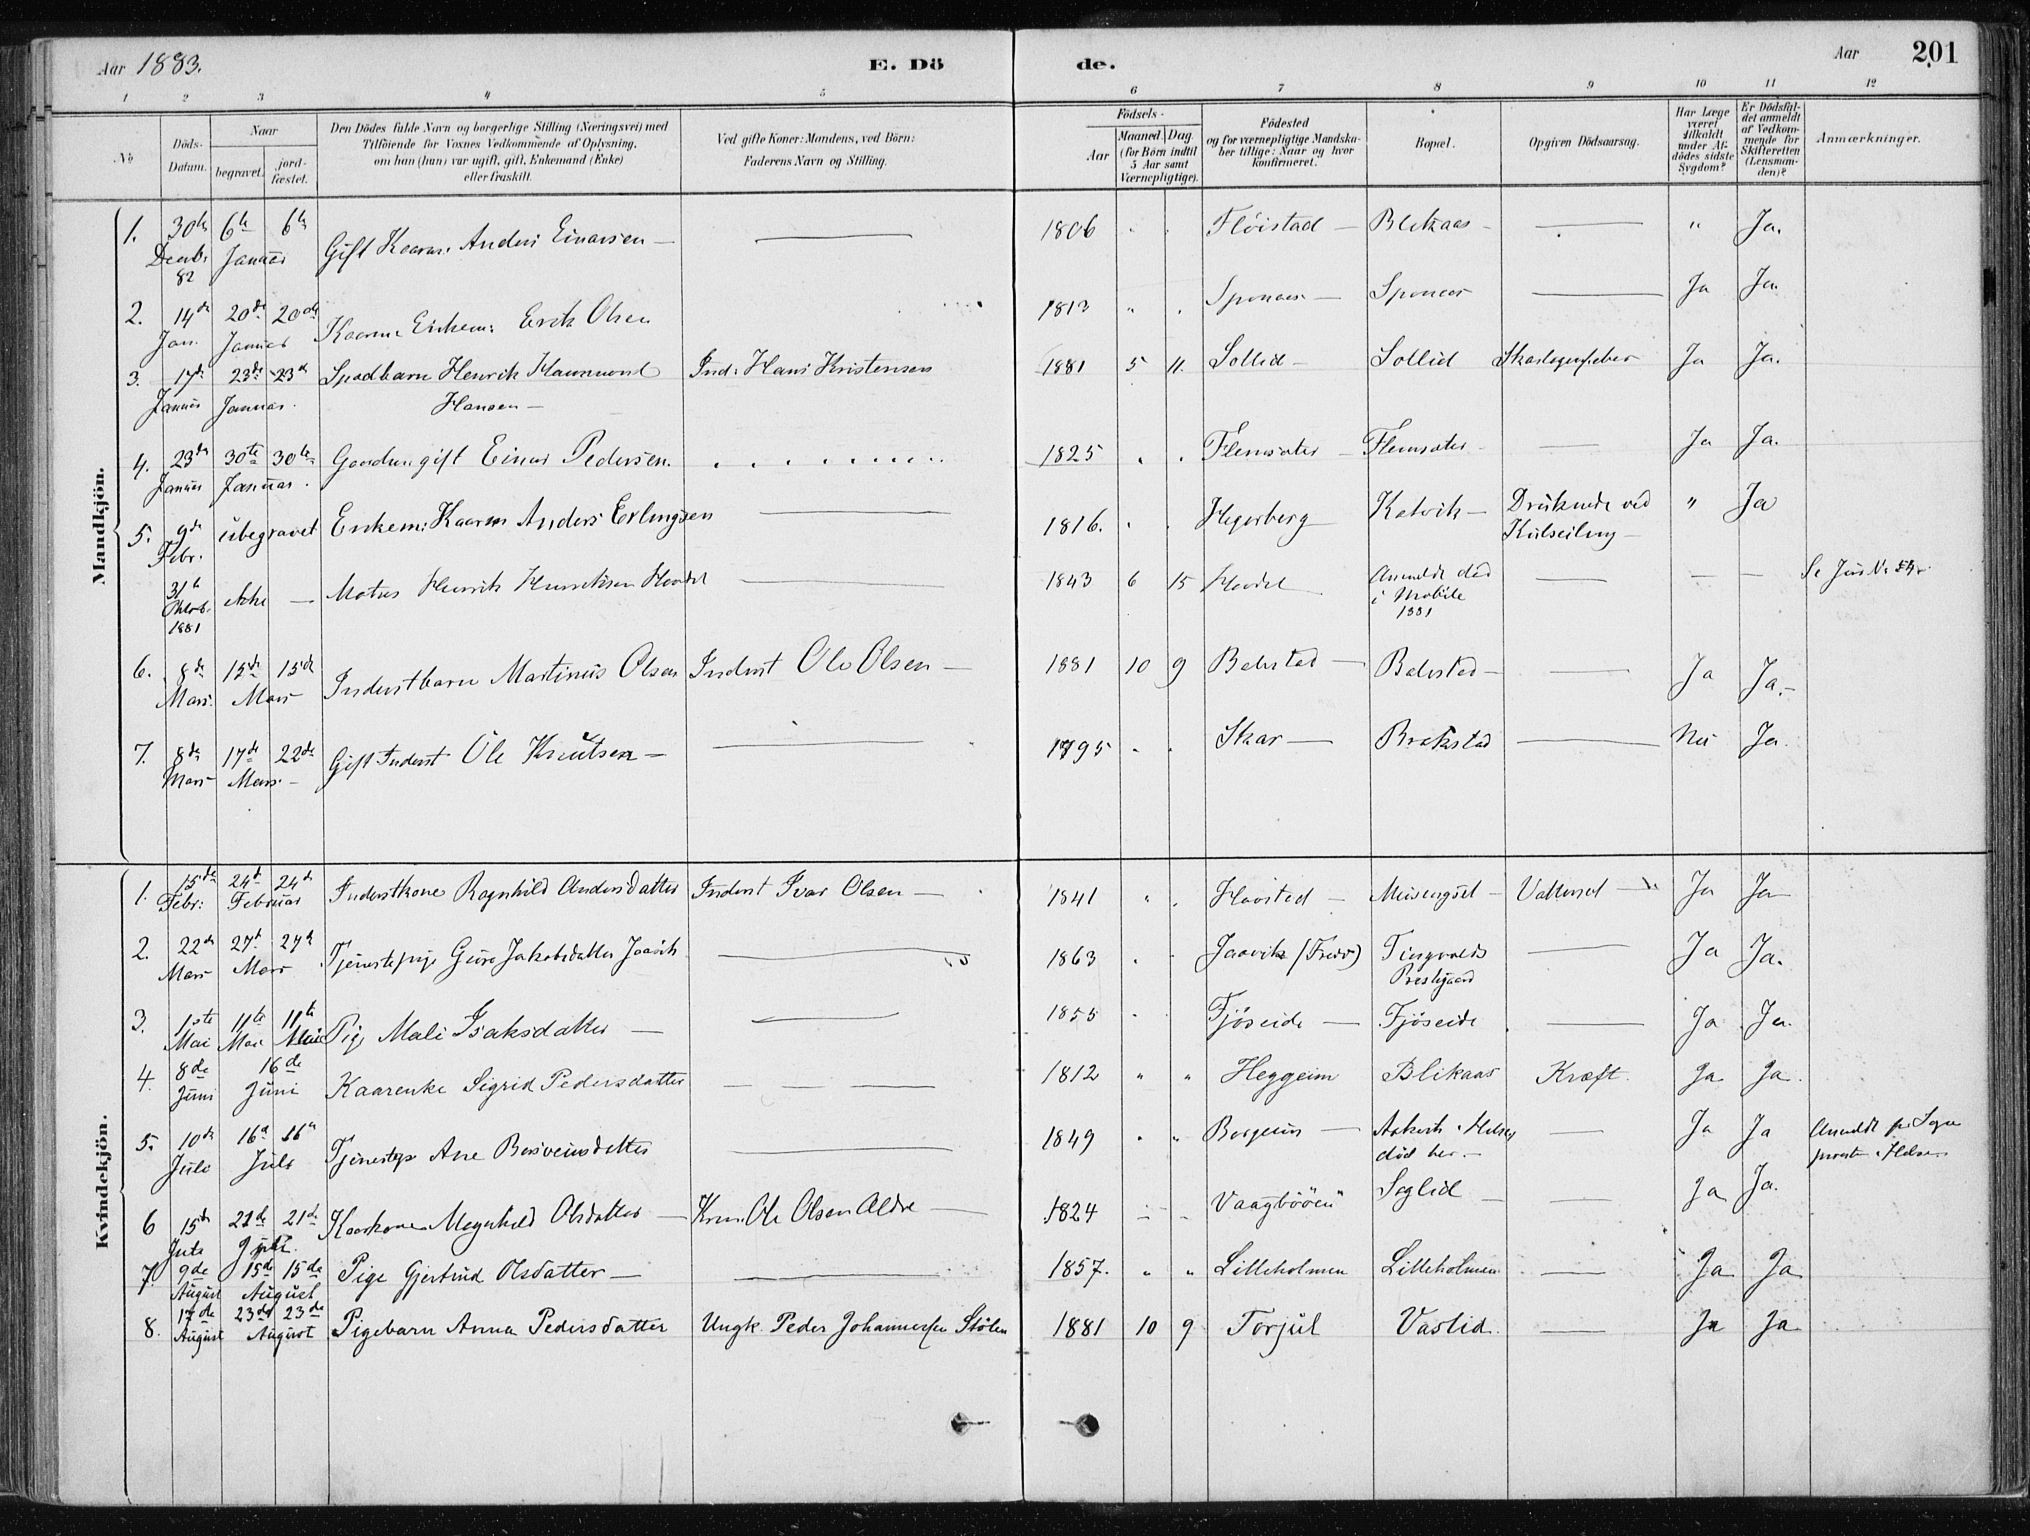 Aar 1883.
E. Dö
de.
Aar
201
1 2 3 4 5 6 7 8 9 10 11 12
No
Döds-Datum.
Naar
begravet.
jord-fæstet.
Den Dödes fulde Navn og borgerlige Stilling (Næringsvei) med
Tilföiende for Voxnes Vedkommende af Oplysning,
om han (hun) var ugift, gift, Enkemand (Enke)
eller fraskilt.
Ved gifte Koner: Mandens, ved Börn:
Faderens Navn og Stilling.
Födsels-
Aar
Maaned Dag
(for Börn indtil
5 Aar samt
Værnepligtige).
Födested
og for værnepligtige Mandska-
ber tillige: Naar og hvor
konfirmeret.
Bopæl.
Opgiven Dödsaarsag.
Har Læge
været
tilkaldt
under Af-
dödes sidste
Sygdom?
Er Dödsfal-
det anmeldt
af Vedkom-
mende for
Skifteretten
(Lensman-
den)?
Anmærkninger.
Mandkjön.
1. 30te Decbr. 82 6te 6te Januar Gift Kaarm. Anders Einarsen — 1806 Flöistad — Blikaas — " Ja.
2. 14de Jan. 20de 20de Januar Kaarm. Enkem: Erik Olsen 1813 " Ja Ja
3. 17de Januar 23de 23de Januar. Spædbarn Henrik
Hansen — Ind: Hans Kristensen 1881 5 11. Sollid — Sollid Skarlagensfeber Ja Ja.
4. 23de Januar 30te 30te Januar. Gaardm gift Einar Pedersen. 1825 Flemsæter — Flemsæter — Ja Ja.
5. 9de Febr. ubegravet Enkem: Kaarm Anders Erlingsen 1816. Katvik — Druknede ved
Kulseiling — " Ja
31te Oktob. 1881 ikke — Matros Henrik Henriksen 1843 6 15 Anmeldt död
i Mobile
1881
6. 8de Mars. 15de 15de Mars Inderstbarn Martinus Olsen Inderst Ole Olsen — 1881 10 9 Ja Ja. —
7. 8de Mars 17de 22de Mars. — Gift Inderst Ole Knutsen — 1795 Skar — Brakstad Nei Ja.
Kvindekjön.
1. 15de Febr: 24de 24de Februar Inderstkone Ragnhild Andersdatter Inderst Ivar Olsen — 1841 " Meisingset — Vattersot — Ja Ja
2. 22de Mars 27de 27de Mars Tjenestepige Guro Jakobsdatter 1863 Jaavik (Fredö) Tingvolds
Prestegaard Ja Ja.
3. 1ste Mai 11te Mai 11te Mai Pige Mali Isaksdatter — 1855 Fjöseide — Fjöseide Ja Ja.
4. 8de Juni 16de Juni Kaarenke Sigrid Pedersdatter 1812 " " Heggeim Blikaas Kræft. Ja Ja.
5. 10de Juli 16de 16de Juli Ane 1849 " död her. — Ja Ja Anmeldt
6 15de Juli 21de 21de Juli. Olsdatter — Ole Olsen Aldre — 1824 Vaagbööen Saglid — Ja Ja.
7. 9de August 15de 15de August Pige Gjertrud Olsdatter — 1857. " " Lilleholmen Lilleholmen Ja Ja
8. 17de August 23de 23de August Pigebarn Anna Pedersdatter Ungk. Peder Johannessen Stölen 1881 10 9 Torjul Vaslid. Ja Ja